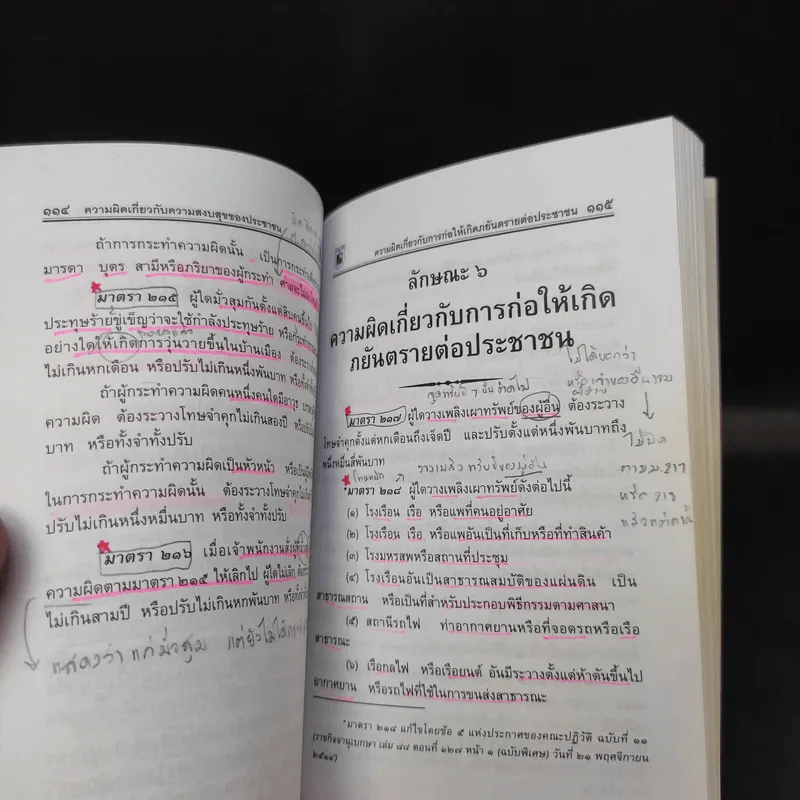 ๑๑๔ ความผิดเกี่ยวกับความสงบสุขของประชาชน
ถ้าการกระทำความผิดนั้น เป็นการกระทำ
มารดา บุตร สามีหรือภริยาของผู้กระทำ ศาลจะไม่
มาตรา ๒๑๕ ผู้ใดมั่วสุมกันตั้งแต่สิบคนขึ้นไป
ประทุษร้ายขู่เข็ญว่าจะใช้กำลังประทุษร้าย หรือกระทำการ
อย่างใดให้เกิดการวุ่นวายขึ้นในบ้านเมือง ต้องระวาง
ไม่เกินหกเดือน หรือปรับไม่เกินหนึ่งพันบาท หรือทั้งจำ
ถ้าผู้กระทำความผิดคนหนึ่งคนใดมีอาวุธ
ความผิด ต้องระวางโทษจำคุกไม่เกินสองปี หรือปรับ
บาท หรือทั้งจำทั้งปรับ
ถ้าผู้กระทำความผิดเป็นหัวหน้า หรือเป็น
ในการกระทำความผิดนั้น ต้องระวางโทษจำคุกไม่เกิน
ปรับไม่เกินหนึ่งหมื่นบาท หรือทั้งจำทั้งปรับ
มาตรา ๒๑๖ เมื่อเจ้าพนักงานสั่งผู้ที่
ความผิดตามมาตรา ๒๑๕ ให้เลิกไป ผู้ใดไม่เลิก ต้อง
ไม่เกินสามปี หรือปรับไม่เกินหกพันบาท หรือทั้งจำ
แสดงว่า แค่มั่วสุม แต่ยังไม่ได้
ความผิดเกี่ยวกับการก่อให้เกิดภยันตรายต่อประชาชน ๑๑๕
ลักษณะ ๖
ความผิดเกี่ยวกับการก่อให้เกิด
ภยันตรายต่อประชาชน
ไม่ได้บอกว่า
มาตรา ๒๑๗ ผู้ใดวางเพลิงเผาทรัพย์ของผู้อื่น ต้องระวาง
โทษจำคุกตั้งแต่หกเดือนถึงเจ็ดปี และปรับตั้งแต่หนึ่งพันบาทถึง
หนึ่งหมื่นสี่พันบาท
ไม่ผิด
ตาม ม.217
หรือ 218
*มาตรา ๒๑๘ ผู้ใดวางเพลิงเผาทรัพย์ดังต่อไปนี้
(๑) โรงเรือน เรือ หรือแพที่คนอยู่อาศัย
(๒) โรงเรือน เรือ หรือแพอันเป็นที่เก็บหรือที่ทำสินค้า
(๓) โรงมหรสพหรือสถานที่ประชุม
(๔) โรงเรือนอันเป็นสาธารณสมบัติของแผ่นดิน เป็น
สาธารณสถาน หรือเป็นที่สำหรับประกอบพิธีกรรมตามศาสนา
(๕) สถานีรถไฟ ท่าอากาศยานหรือที่จอดรถหรือเรือ
สาธารณะ
(๖) เรือกลไฟ หรือเรือยนต์ อันมีระวางตั้งแต่ห้าตันขึ้นไป
อากาศยาน หรือรถไฟที่ใช้ในการขนส่งสาธารณะ
*มาตรา ๒๑๘ แก้ไขโดยข้อ ๕ แห่งประกาศของคณะปฏิวัติ ฉบับที่ ๑๑
(ราชกิจจานุเบกษา เล่ม ๘๘ ตอนที่ ๑๒๗ หน้า ๑ (ฉบับพิเศษ) วันที่ ๒๑ พฤศจิกายน
๒๕๑๔)